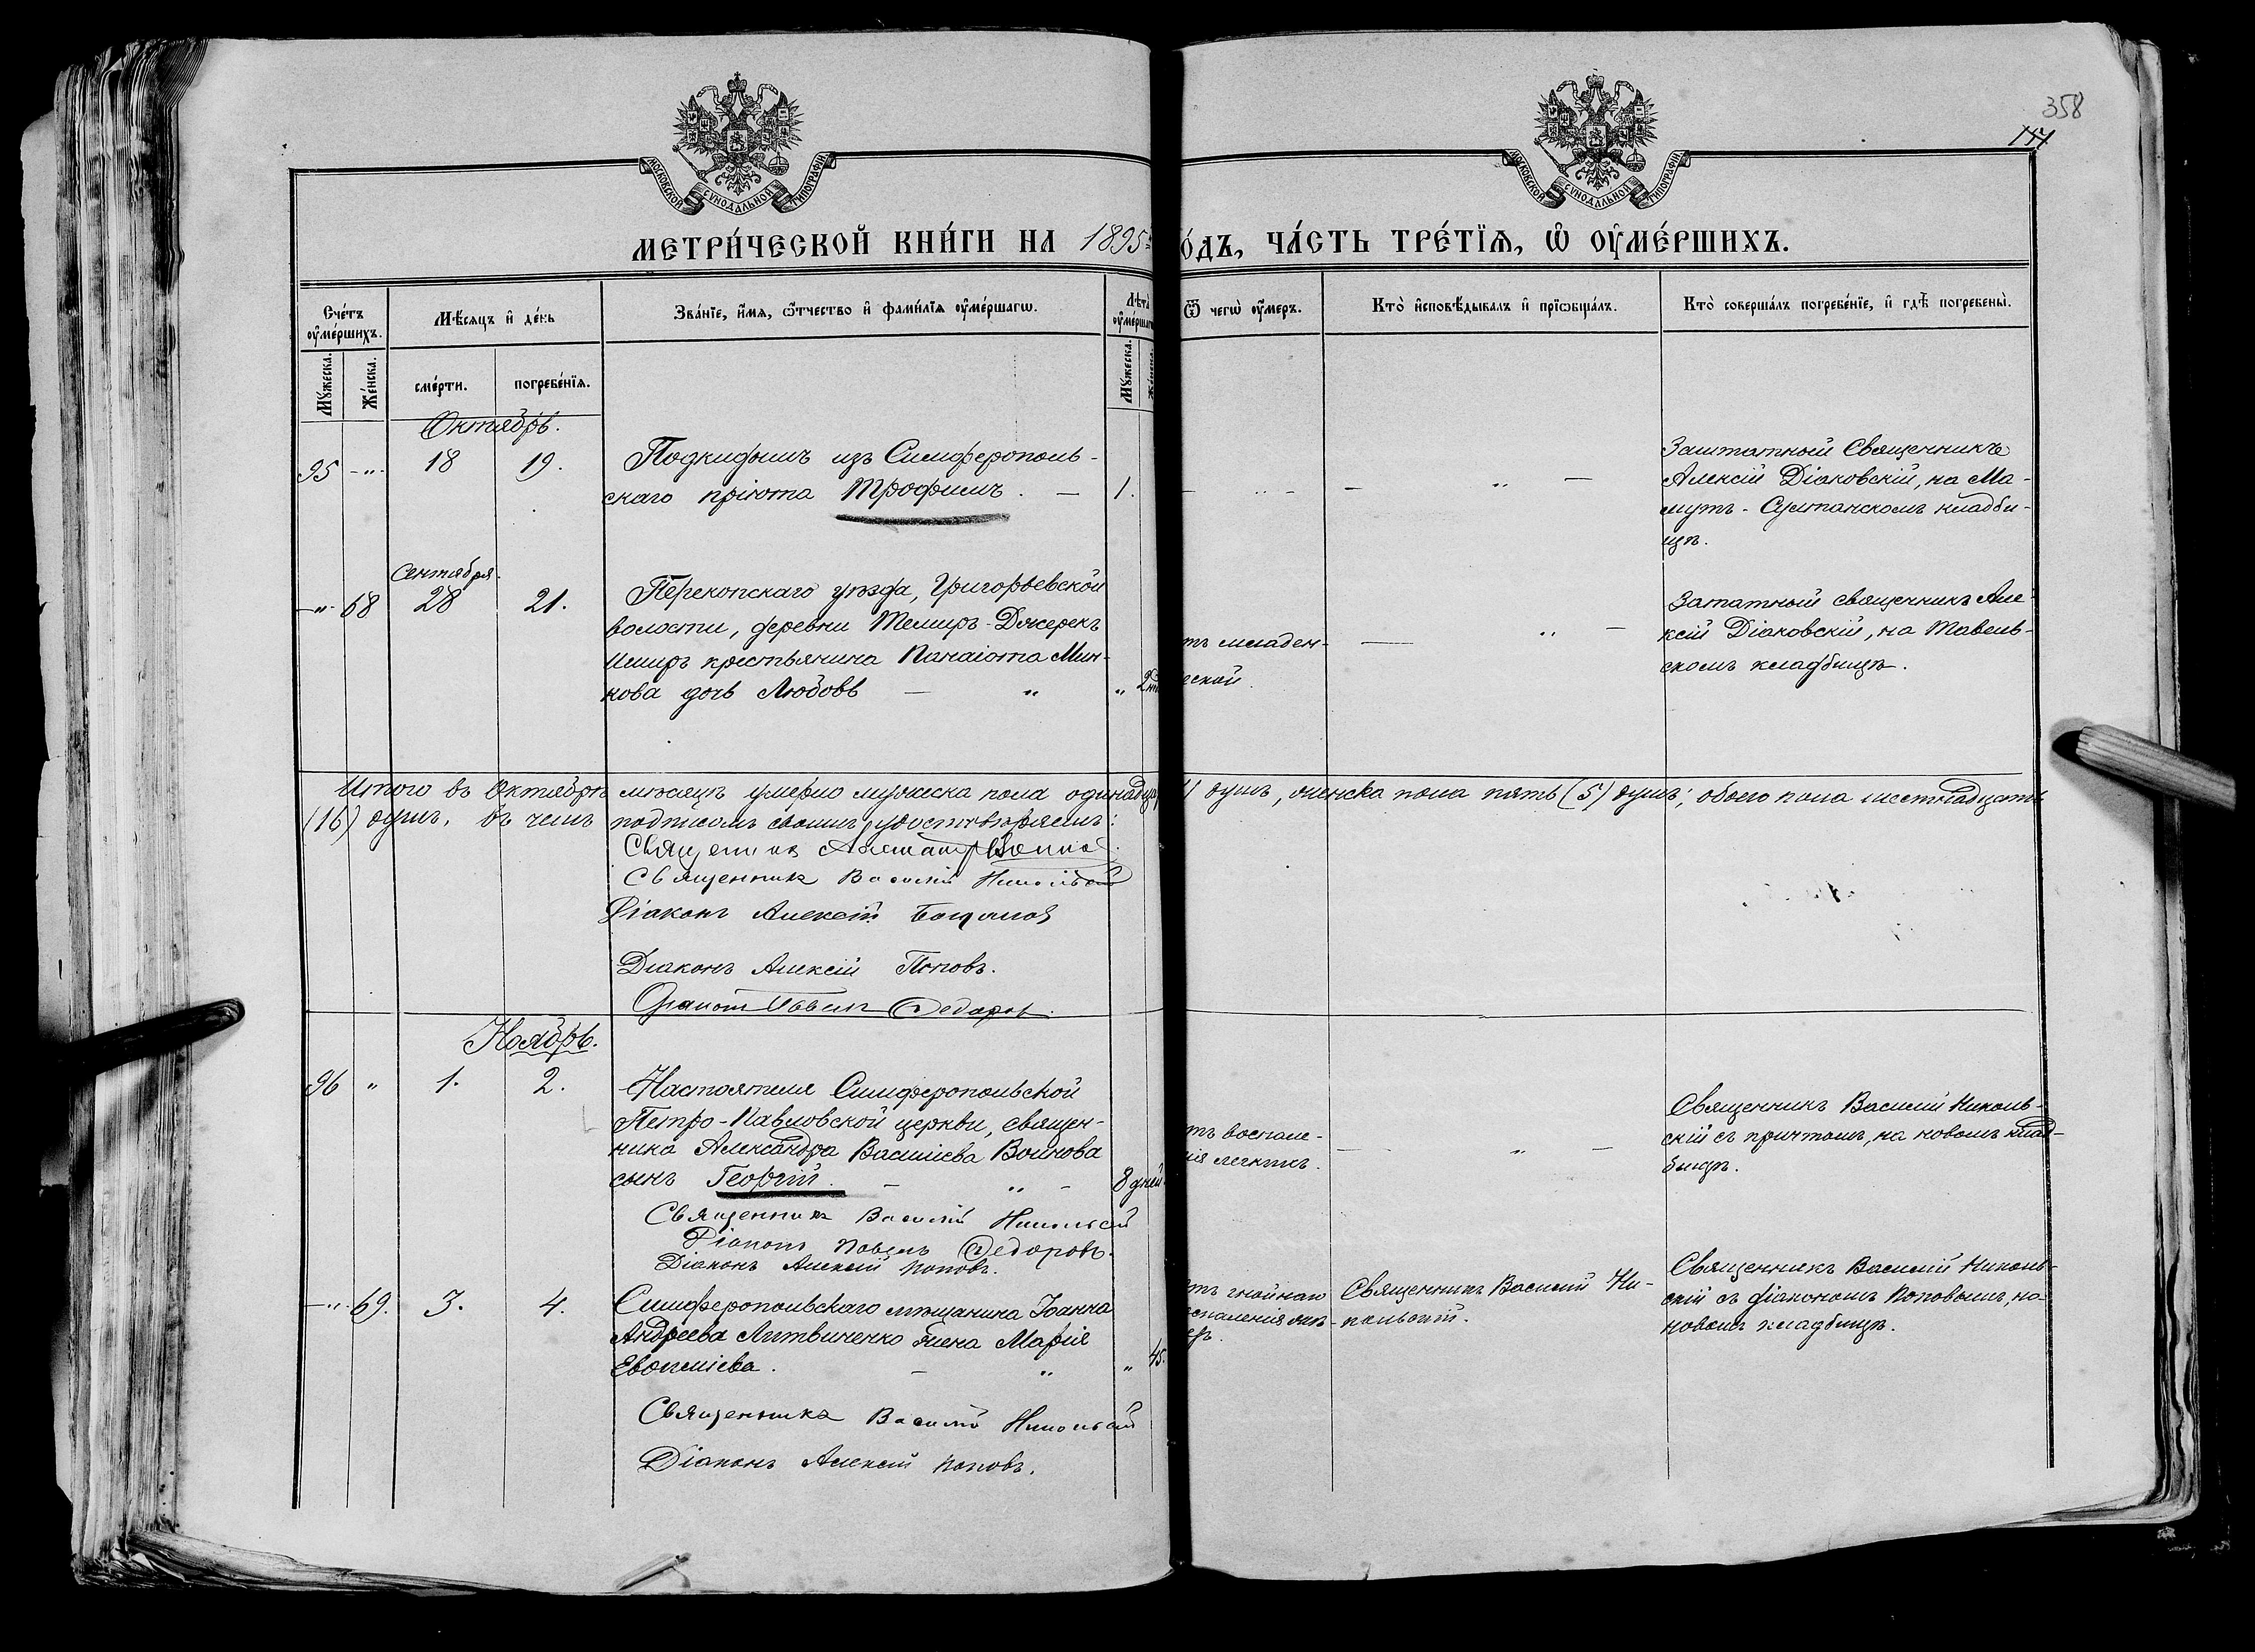 358
МОСКОВСКОЙ СУНОДАЛЬНОЙ ТИПОГРАФІИ
МОСКОВСКОЙ СУНОДАЛЬНОЙ ТИПОГРАФІИ
МЕТРИ́ЧЕСКОЙ КНИ́ГИ НА 1895
О́ДЪ, ЧА́СТЬ ТРЕ́ТЇѦ, Ѡ҆ ОУ҆МЕ́РШИХЪ.
Сче́тъ оу҆ме́ршихъ.
Мѣ́сяцъ и҆ де́нь
Зва́нїе, и҆́мѧ, ѻ҆́тчество и҆ фами́лїѧ оу҆ме́ршагѡ.
Лѣта̀ оу҆ме́ршагѡ
Ѿ чегѡ̀ оу҆́меръ.
Кто̀ и҆сповѣ́дывалъ и҆ прїѡбща́лъ.
Кто̀ соверша́лъ погребе́нїе, и҆ гдѣ̀ погребены̀.
Мꙋ́жеска.
Же́нска.
сме́рти.
погребе́нїѧ.
Мꙋ́жеска.
Октябрь.
95 - " - 18 19. Подкидышъ изъ Симферополь-
скаго пріюта Трофимъ. — 1.
Заштатный Священникъ
Алексій Діаковскій, на Ма-
мутъ - Султанскомъ кладби-
щѣ.
Сентября.
- " - 68 28 21. Перекопскаго уѣзда, Григорьевской
волости, деревни Темиръ - Джерекъ
крестьянина Панаіота Мин-
кова дочь Любовь — " " 2
тъ младен-
еской.
Заштатный священникъ Але-
ксій Діаковскій, на Тавель-
скомъ кладбищѣ.
Итого въ Октябрѣ мѣсяцѣ умерло мужеска пола одинадца
) душъ, женска пола пять (5) душъ; обоего пола шестнадцать
(16) душъ, въ чемъ подписомъ своимъ удостовѣряемъ:
Священникъ
Священникъ Василій Никольскій
Діаконъ Алексій
Діаконъ Алексій Поповъ.
Діаконъ Павелъ Ѳедоровъ.
Ноябрь.
96 " 1. 2. Настоятеля Симферопольской
Петро - Павловской церкви, священ-
ника Александра Василіева Воинова
сынъ Георгій. - " - 8 дней
тъ воспале-
ія легкихъ.
Священникъ Василій Николь-
скій съ причтомъ, на новомъ клад-
бищѣ.
Священникъ Василій Никольскій
Діаконъ Павелъ Ѳедоровъ.
Діаконъ Алексій Поповъ.
- " - 69. 3. 4. Симферопольскаго мѣщанина Іоанна
Андреева Литвиненко жена Марія
Евѳиміева. - " " 45.
тъ гнойнаго
Священникъ Василій Ни-
кольскій.
Священникъ Василій Николь-
скій съ діакономъ Поповымъ, на
новомъ кладбищѣ.
Священникъ Василій Никольскій
Діаконъ Алексій Поповъ.